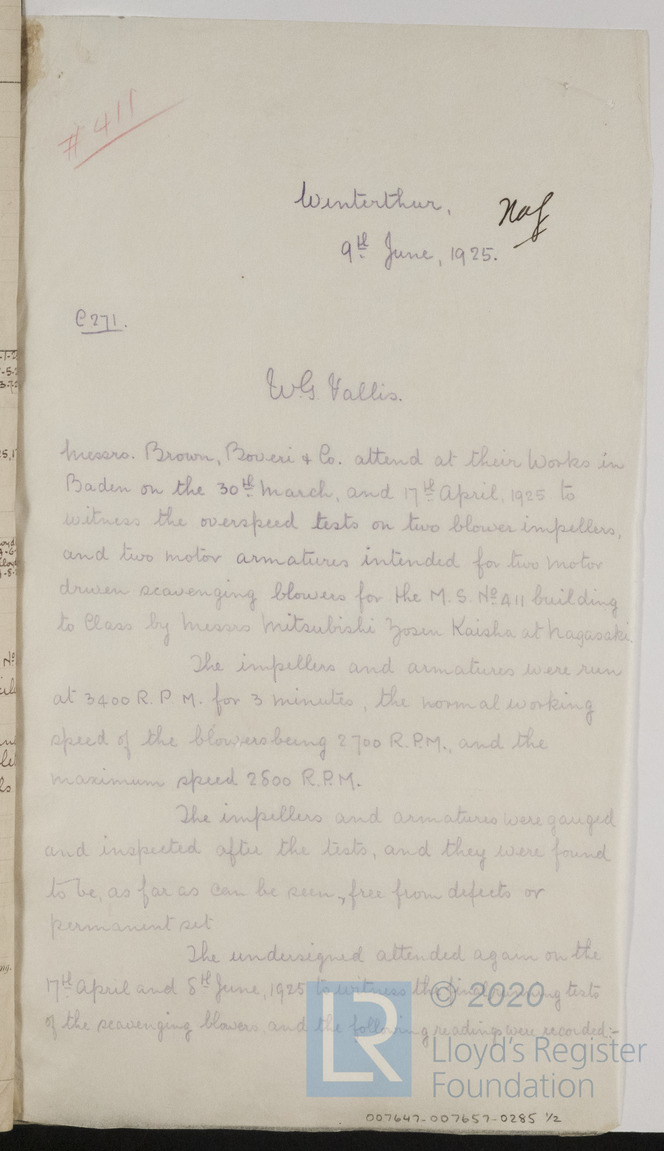 # 411
Winterthur,
Naf
9th June, 1925.
C271.
W.G. Vallis.
Messrs. Brown, Boveri & Co. attend at their Works in
Baden on the 30th March, and 17th April, 1925 to
witness the overspeed tests on two blower impellers,
and two motor armatures intended for two motor
driven scavenging blowers for the M.S. No 411 building
to Class by Messrs Mitsubishi Zosen Kaisha at Nagasaki.
The impellers and armatures were run
at 3400 R.P.M. for 3 minutes, the normal working
speed of the blowers being 2700 R.P.M., and the
maximum speed 2800 R.P.M.
The impellers and armatures were gauged
and inspected after the tests, and they were found
to be, as far as can be seen, free from defects or
permanent set
The undersigned attended again on the
17th April and 8th June, 1925 to witness the running tests
of the scavenging blowers, and the following readings were recorded:-
LR
© 2020
Lloyd's Register
Foundation
007647-007657-0285 1/2